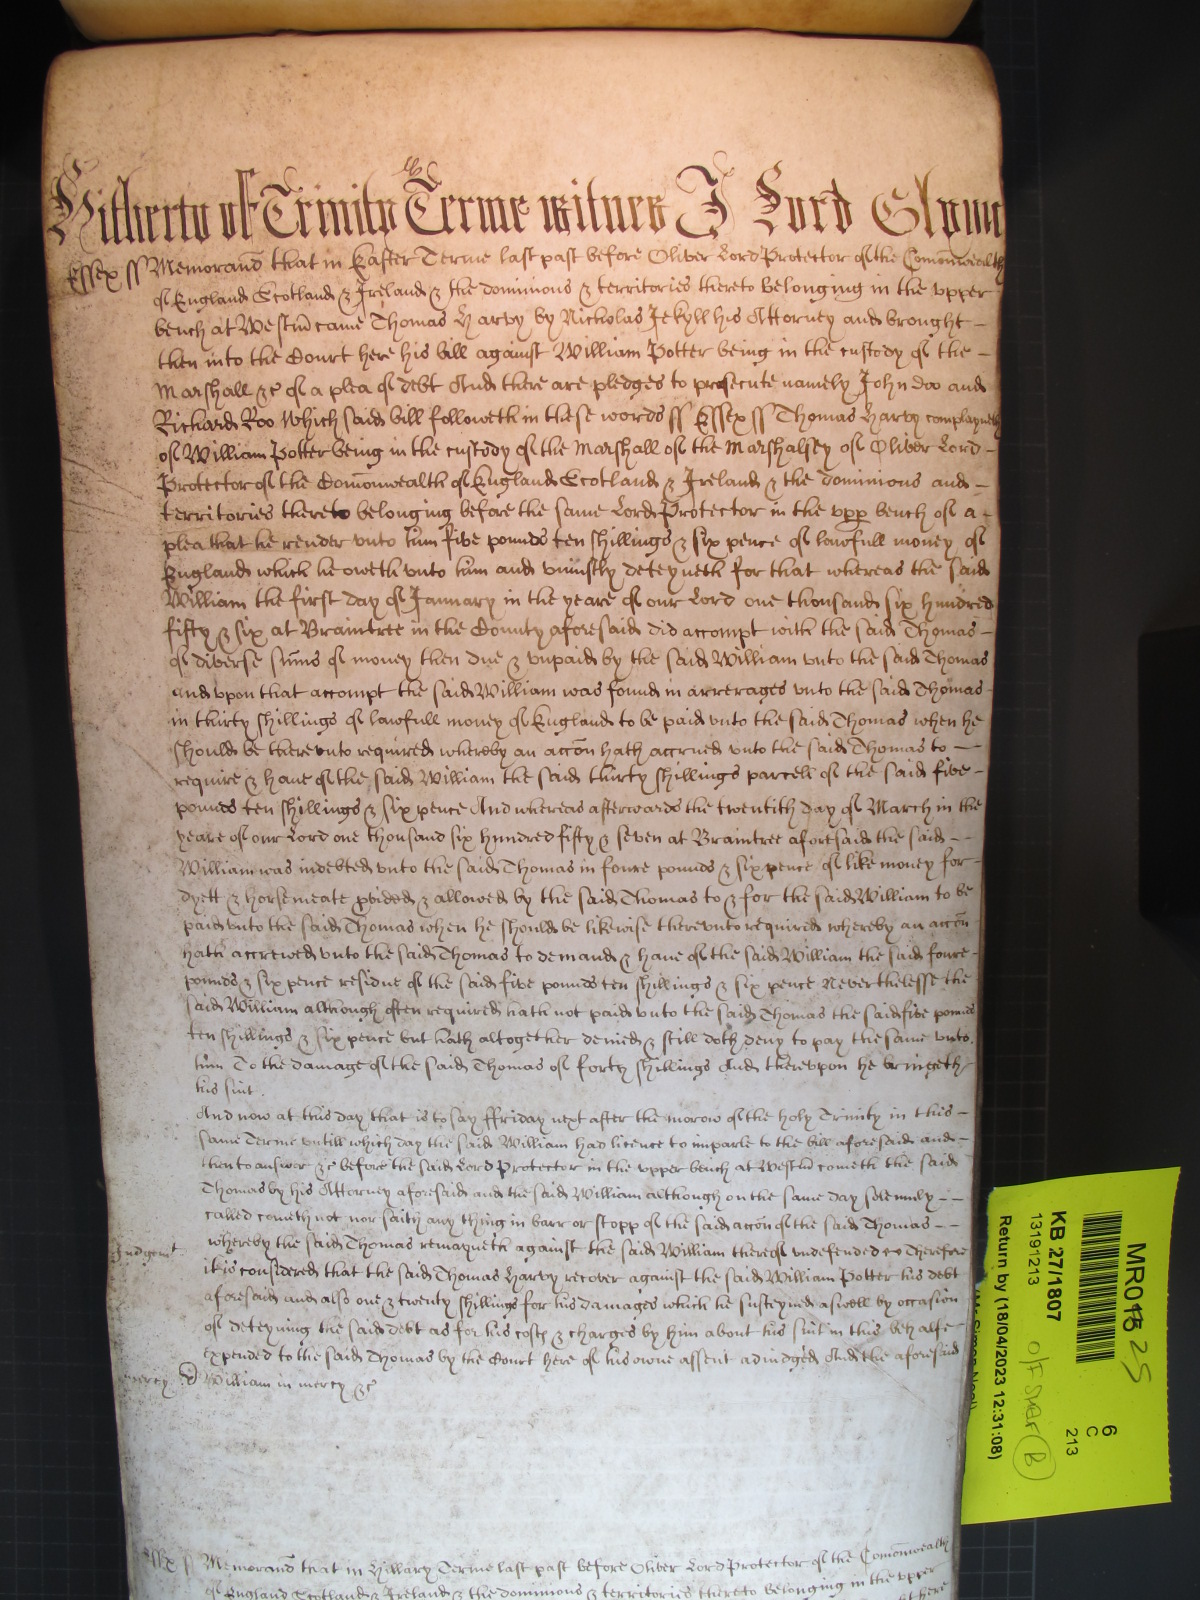 Hitherto of Trinity Terme witnes J Lord Glynne
Essex ss Memorand that in Easter Terme last past before Oliver Lord Protector of the Comonwealth
of England Scotland & Ireland & the dominions & territories thereto belonging in the upper
bench at Westm came Thomas Harvy by Nicholas Jekyll his Attorney and brought –
then into the Court here his bill against William Potter being in the custody of the –
Marshall &c of a plea of debt And there are pledges to prosecute namely John doo and
Richard Roo Which said bill followeth in these words ss Essex ss Thomas Harvy complayneth
of William Potter being in the custody of the Marshall of the Marshalsey of Oliver Lord –
Protector of the Comonwealth of England Scotland & Ireland & the dominions and –
territories thereto belonging before the same Lord Protector in the upp bench of a –
plea that he render unto him five pounds ten shillings & six pence of lawfull money of
England which he oweth unto him and uniustly deteyneth for that whereas the said
William the first day of January in the yeare of our Lord one thousand six hundred
fifty & six at Braintree in the County aforesaid did accompt with the said Thomas –
of diverse sums of money then due & unpaid by the said William unto the said Thomas
and upon that accompt the said William was found in arrerages unto the said Thomas
in thirty shillings of lawfull money of England to be paid unto the said Thomas when he
should be thereunto required whereby an accon hath accrued unto the said Thomas to —
require & have of the said William the said thirty shillings parcell of the said five –
pounds ten shillings & six pence And whereas afterwards the twentith day of March in the
yeare of our Lord one thousand six hundred fifty & seven at Braintree aforesaid the said – –
William was indebted unto the said Thomas in foure pounds & six pence of like money for –
dyett & horsemeate pvided & allowed by the said Thomas to & for the said William to be
paid unto the said Thomas when he should be likewise thereunto required whereby an accon
hath accrewed unto the said Thomas to demand & have of the said William the said foure –
pounds & six pence residue of the said five pounds ten shillings & six pence Neverthelesse the
said William although often required hath not paid unto the said Thomas the said five pounds
ten shillings & six pence but hath altogether denied & still doth deny to pay the same unto
him To the damage of the said Thomas of forty shillings And thereupon he bringeth
his suit.
And now at this day that is to say ffriday next after the morow of the holy Trinity in this –
same Terme untill which day the said William had licence to imparle to the bill aforesaid and –
then to answer &c before the said Lord Protector in the upper bench at Westm cometh the said
Thomas by his Attorney aforesaid and the said William although on the same day solemnly – –
called cometh not nor saith any thing in barr or stopp of the said accon of the said Thomas – –
whereby the said Thomas remayneth against the said William thereof undefended &c Therefore
Judgemt
it is considered that the said Thomas Harvy recover against the said William Potter his debt
aforesaid and also one & twenty shillings for his damages which he susteyned aswell by occasion
of deteyning the said debt as for his costs & charges by him about his suit in this behalfe
expended to the said Thomas by the Court here of his owne assent adiudged And the aforesaid
mercy William in mercy &c
Essex ss Memorand that in Hillary Terme last past before Oliver Lord Protector of the Comonwealth
of England Scotland & Ireland & the dominions & territories thereto belonging in the upper
MR018 25
6
C
213
KB 27/1807
13191213
Return by (18/04/2023 12:31:08)